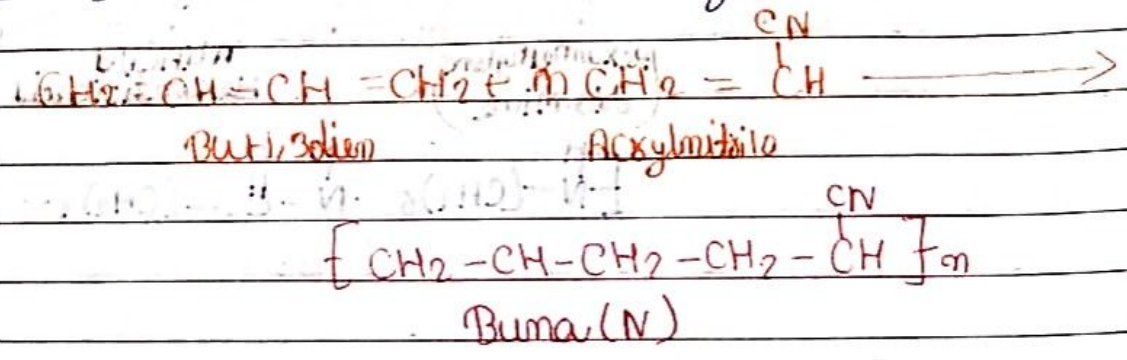 CN
CH2=CH-CH=CH2 + n CH2 = CH
But1,3dien Acrylnitrile
CN
[CH2-CH-CH2-CH2-CH]n
Buna(N)